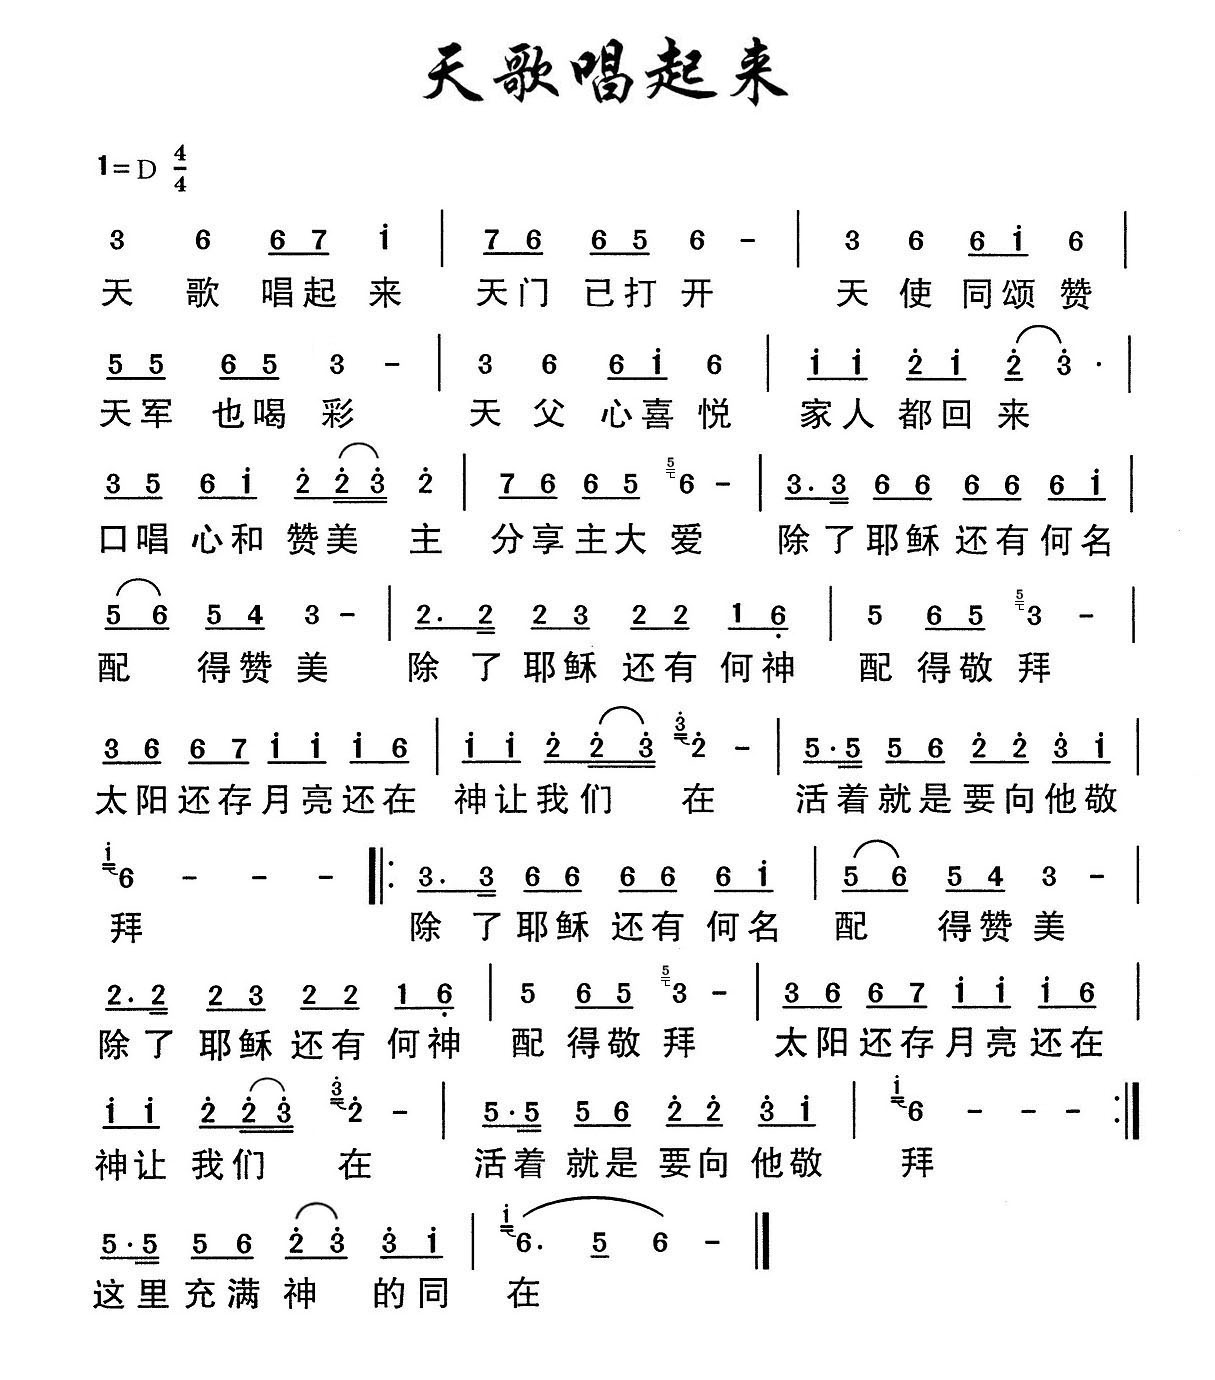 天歌唱起来
1=D 4/4
3 6 6 7 i | 7 6 6 5 6 - | 3 6 6 i 6 |
天 歌 唱起 来 天门 已打 开 天 使 同颂 赞
5 5 6 5 3 - | 3 6 6 i 6 | i i 2̇ i 2̇ 3̇ · |
天军 也喝 彩 天 父 心喜 悦 家人 都回 来
3 5 6 i 2̇ 2̇ 3̇ 2̇ | 7 6 6 5 5 6 - | 3. 3 6 6 6 6 6 i |
口唱 心和 赞美 主 分享 主大 爱 除了 耶稣 还有 何名
5 6 5 4 3 - | 2. 2 2 3 2 2 1 6̣ | 5 6 5 5 3 - |
配 得赞 美 除了 耶稣 还有 何神 配 得敬 拜
3 6 6 7 i i i 6 | i i 2̇ 2̇ 3̇ 3̇ 2̇ - | 5·5 5 6 2̇ 2̇ 3̇ i |
太阳 还存 月亮 还在 神让 我们 在 活着 就是 要向 他敬
i 6 - - - |: 3. 3 6 6 6 6 6 i | 5 6 5 4 3 - |
拜 除了 耶稣 还有 何名 配 得赞 美
2. 2 2 3 2 2 1 6̣ | 5 6 5 5 3 - | 3 6 6 7 i i i 6 |
除了 耶稣 还有 何神 配 得敬 拜 太阳 还存 月亮 还在
i i 2̇ 2̇ 3̇ 3̇ 2̇ - | 5·5 5 6 2̇ 2̇ 3̇ i | i 6 - - - :|
神让 我们 在 活着 就是 要向 他敬 拜
5·5 5 6 2̇ 3̇ 3̇ i | i 6. 5 6 - ‖
这里 充满 神 的同 在